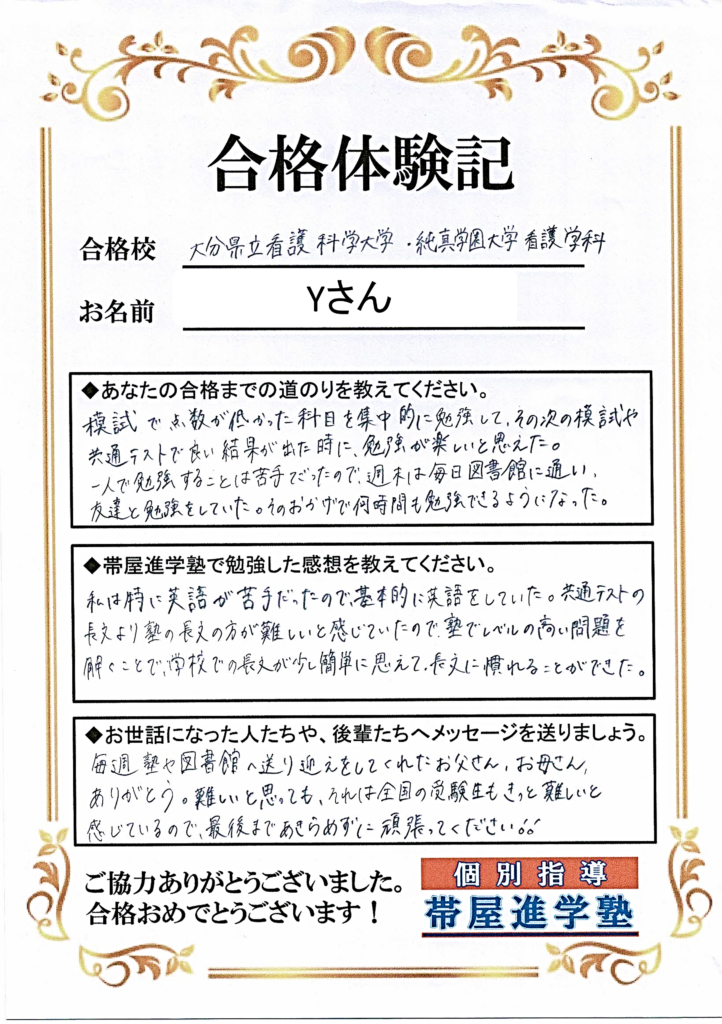 合格体験記
合格校 大分県立看護科学大学・純真学園大学 看護学科
お名前 Yさん
◆あなたの合格までの道のりを教えてください。
模試で点数が低かった科目を集中的に勉強して、その次の模試や
共通テストで良い結果が出た時に、勉強が楽しいと思えた。
一人で勉強することは苦手だったので、週末は毎日図書館に通い、
友達と勉強をしていた。そのおかげで何時間も勉強できるようになった。
◆帯屋進学塾で勉強した感想を教えてください。
私は特に英語が苦手だったので、基本的に英語をしていた。共通テストの
長文より塾の長文の方が難しいと感じていたので、塾でレベルの高い問題を
解くことで、学校での長文が少し簡単に思えて、長文に慣れることができた。
◆お世話になった人たちや、後輩たちへメッセージを送りましょう。
毎週塾や図書館へ送り迎えをしてくれたお父さん、お母さん、
ありがとう。難しいと思っても、それは全国の受験生もきっと難しいと
感じているので、最後まであきらめずに頑張ってください!!
ご協力ありがとうございました。
合格おめでとうございます！
個別指導
帯屋進学塾